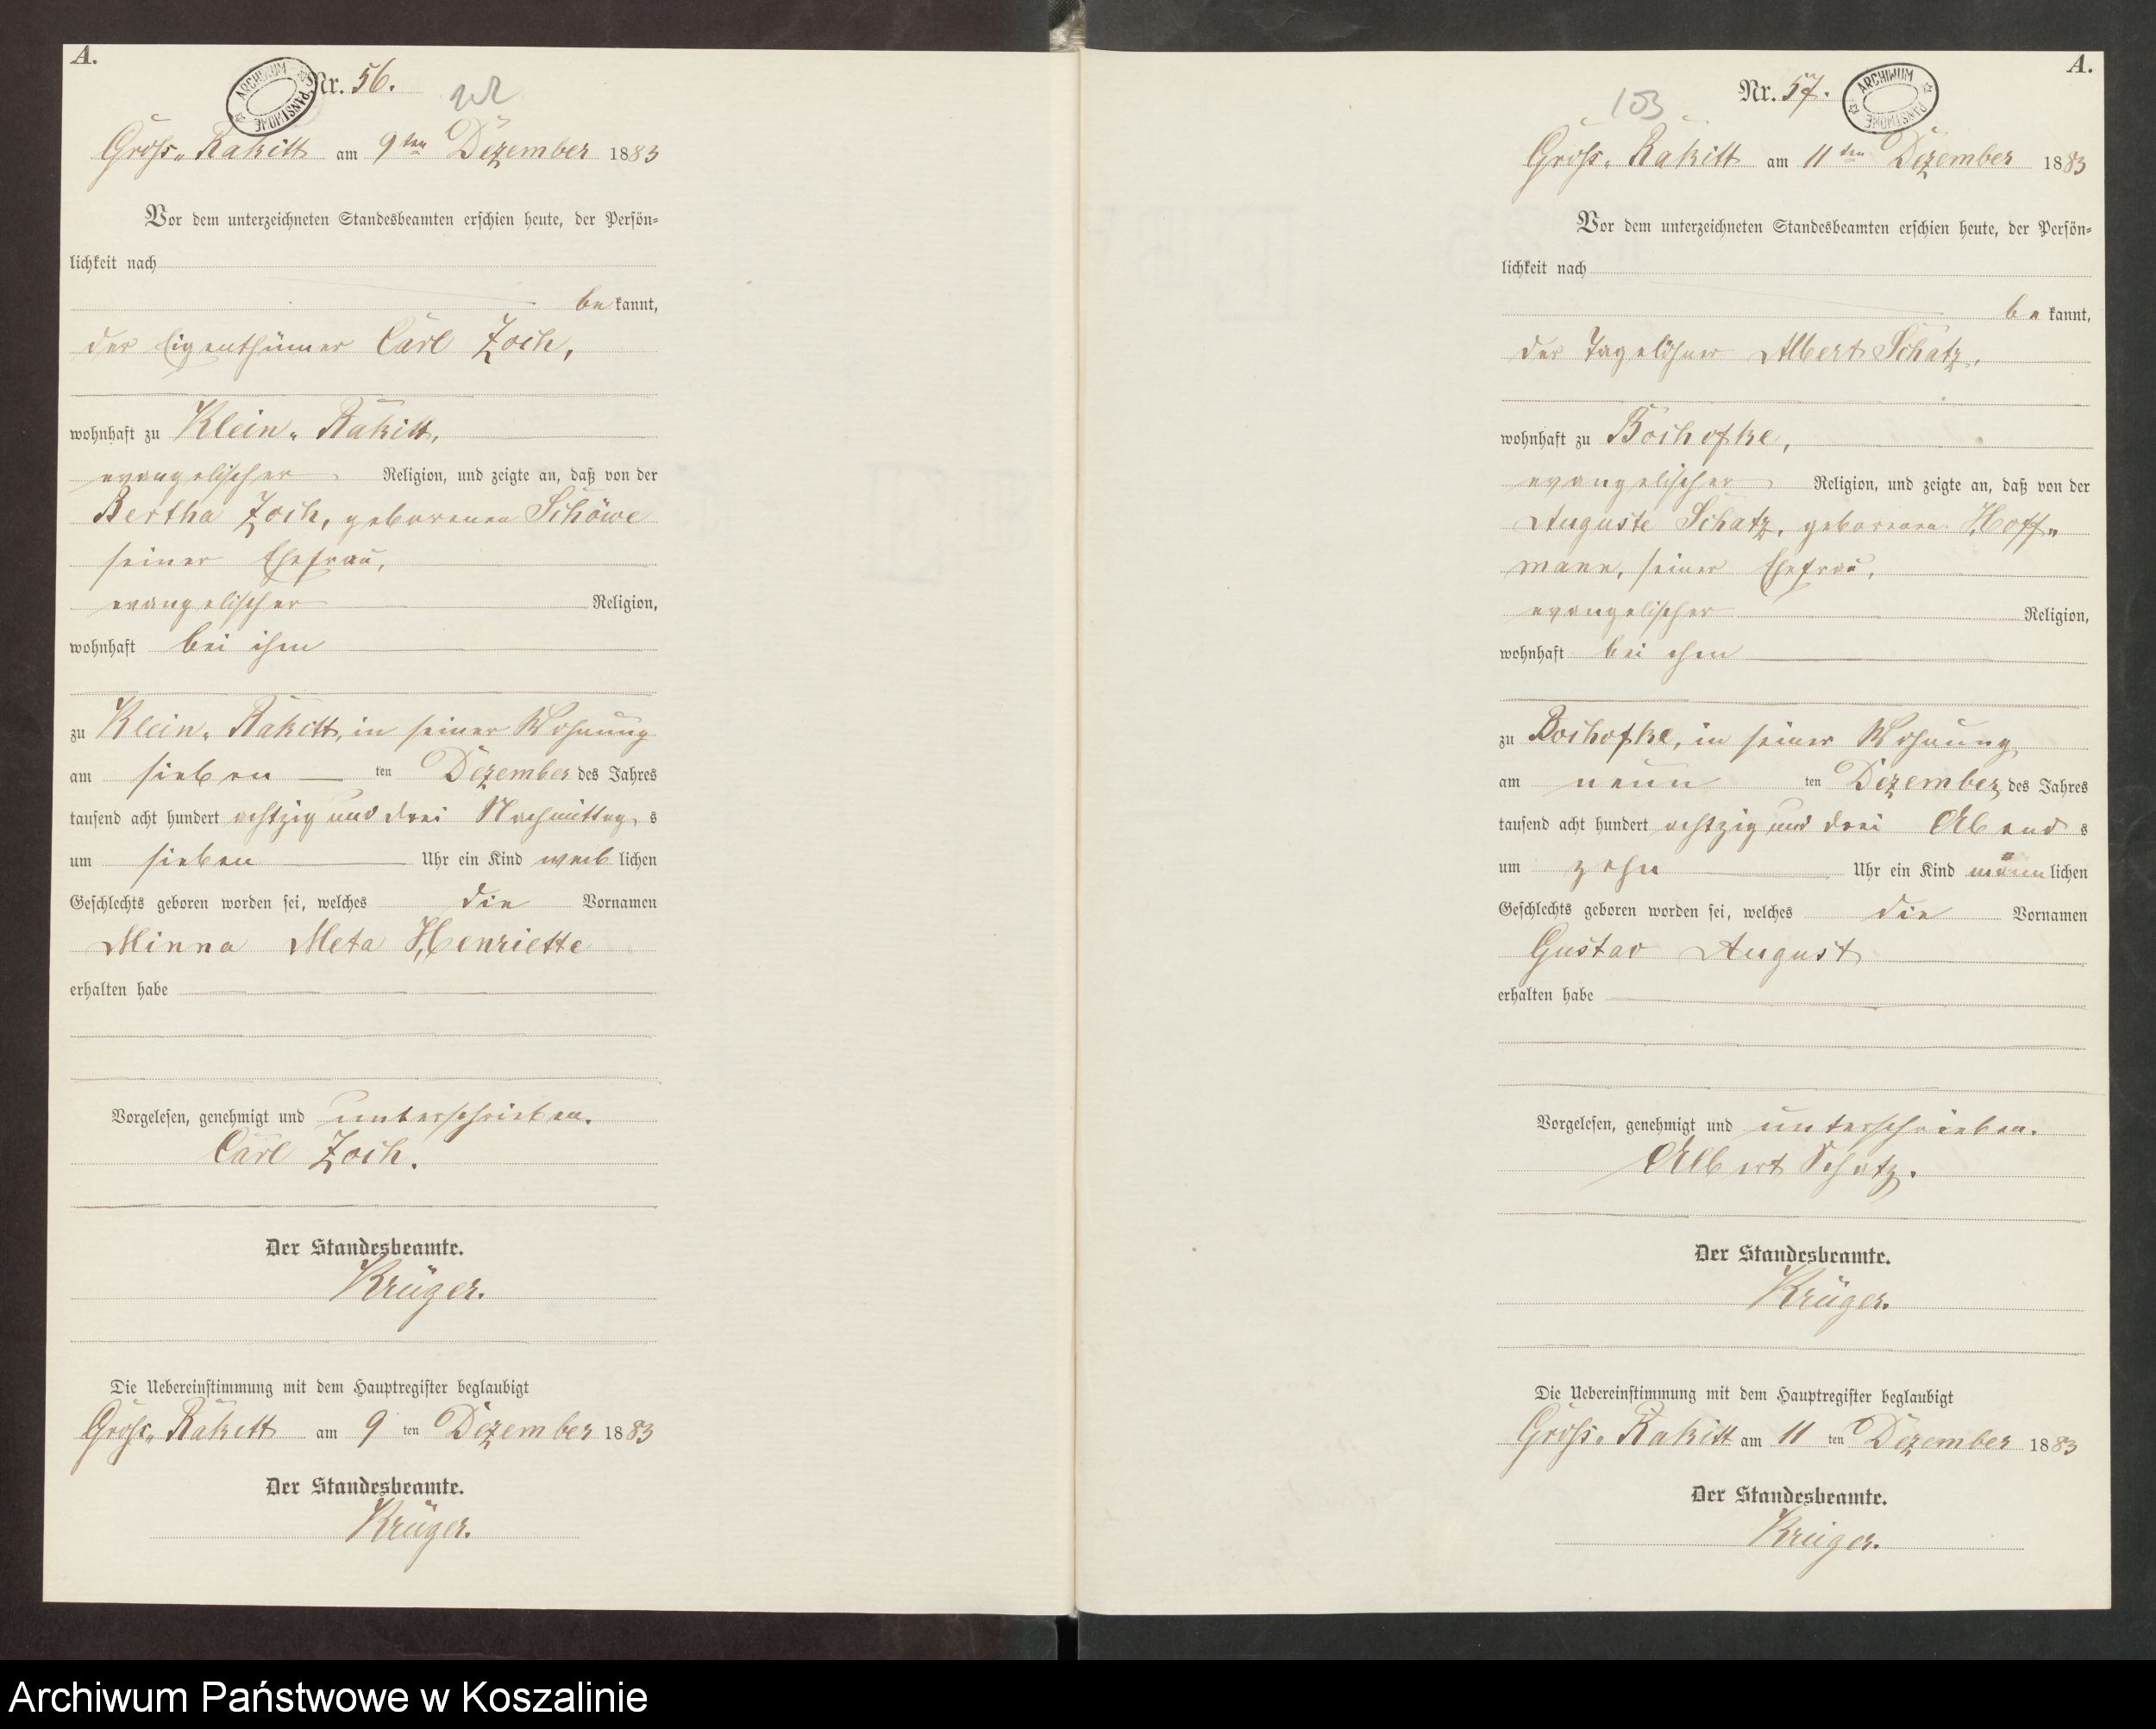 A.
ARCHIWUM PAŃSTWOWE
Nr. 56.
Groß-Rakitt am 9ten Dezember 1883
Vor dem unterzeichneten Standesbeamten erschien heute, der Persön-
lichkeit nach
bekannt,
der Eigenthümer Carl Zoch,
wohnhaft zu Klein-Rakitt,
evangelischer Religion, und zeigte an, daß von der
Bertha Zoch, geborenen Schöwe
seiner Ehefrau,
evangelischer Religion,
wohnhaft bei ihm
zu Klein-Rakitt, in seiner Wohnung
am sieben ten Dezember des Jahres
tausend acht hundert achtzig und drei Nachmittags
um sieben Uhr ein Kind weiblichen
Geschlechts geboren worden sei, welches die Vornamen
Minna Meta Henriette
erhalten habe
Vorgelesen, genehmigt und unterschrieben.
Carl Zoch.
Der Standesbeamte.
Krüger.
Die Uebereinstimmung mit dem Hauptregister beglaubigt
Groß-Rakitt am 9 ten Dezember 1883
Der Standesbeamte.
Krüger.
A.
103
Nr. 57.
ARCHIWUM PAŃSTWOWE
Groß-Rakitt am 11ten Dezember 1883
Vor dem unterzeichneten Standesbeamten erschien heute, der Persön-
lichkeit nach
bekannt,
der Tagelöhner Albert Schatz,
wohnhaft zu Bochofke,
evangelischer Religion, und zeigte an, daß von der
Auguste Schatz, geborenen Hoff-
mann, seiner Ehefrau,
evangelischer Religion,
wohnhaft bei ihm
zu Bochofke, in seiner Wohnung
am neun ten Dezember des Jahres
tausend acht hundert achtzig und drei Abends
um zehn Uhr ein Kind männlichen
Geschlechts geboren worden sei, welches die Vornamen
Gustav August
erhalten habe
Vorgelesen, genehmigt und unterschrieben.
Albert Schatz.
Der Standesbeamte.
Krüger.
Die Uebereinstimmung mit dem Hauptregister beglaubigt
Groß-Rakitt am 11 ten Dezember 1883
Der Standesbeamte.
Krüger.
Archiwum Państwowe w Koszalinie